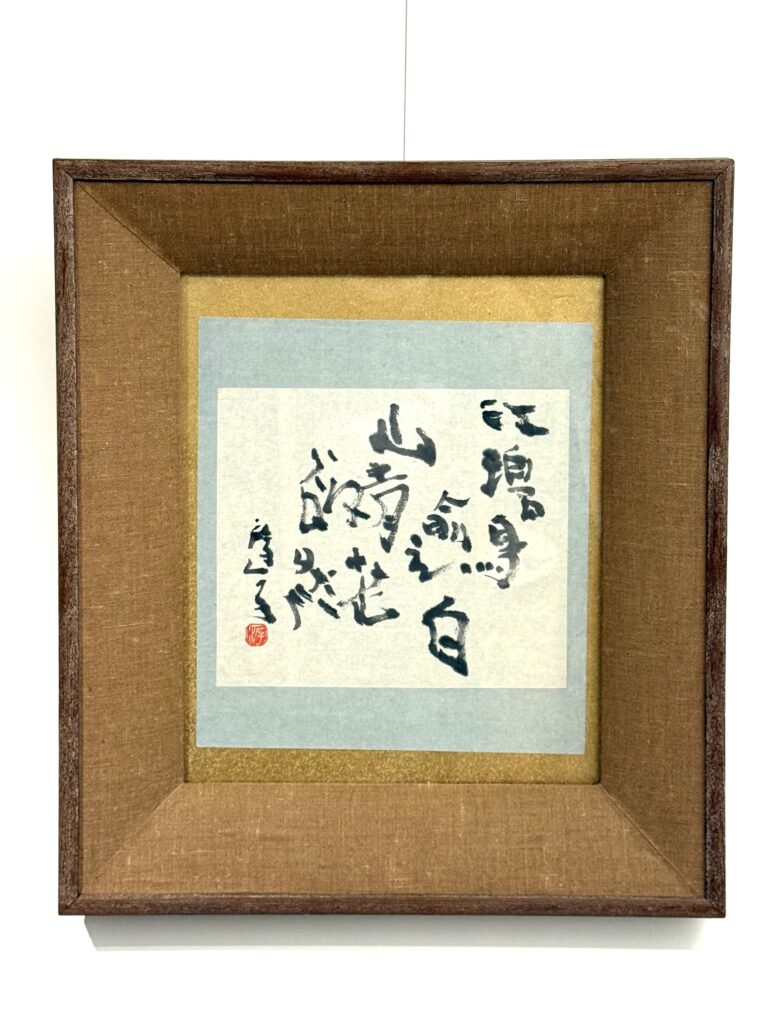 江碧鳥
逾白
山青花
欲然